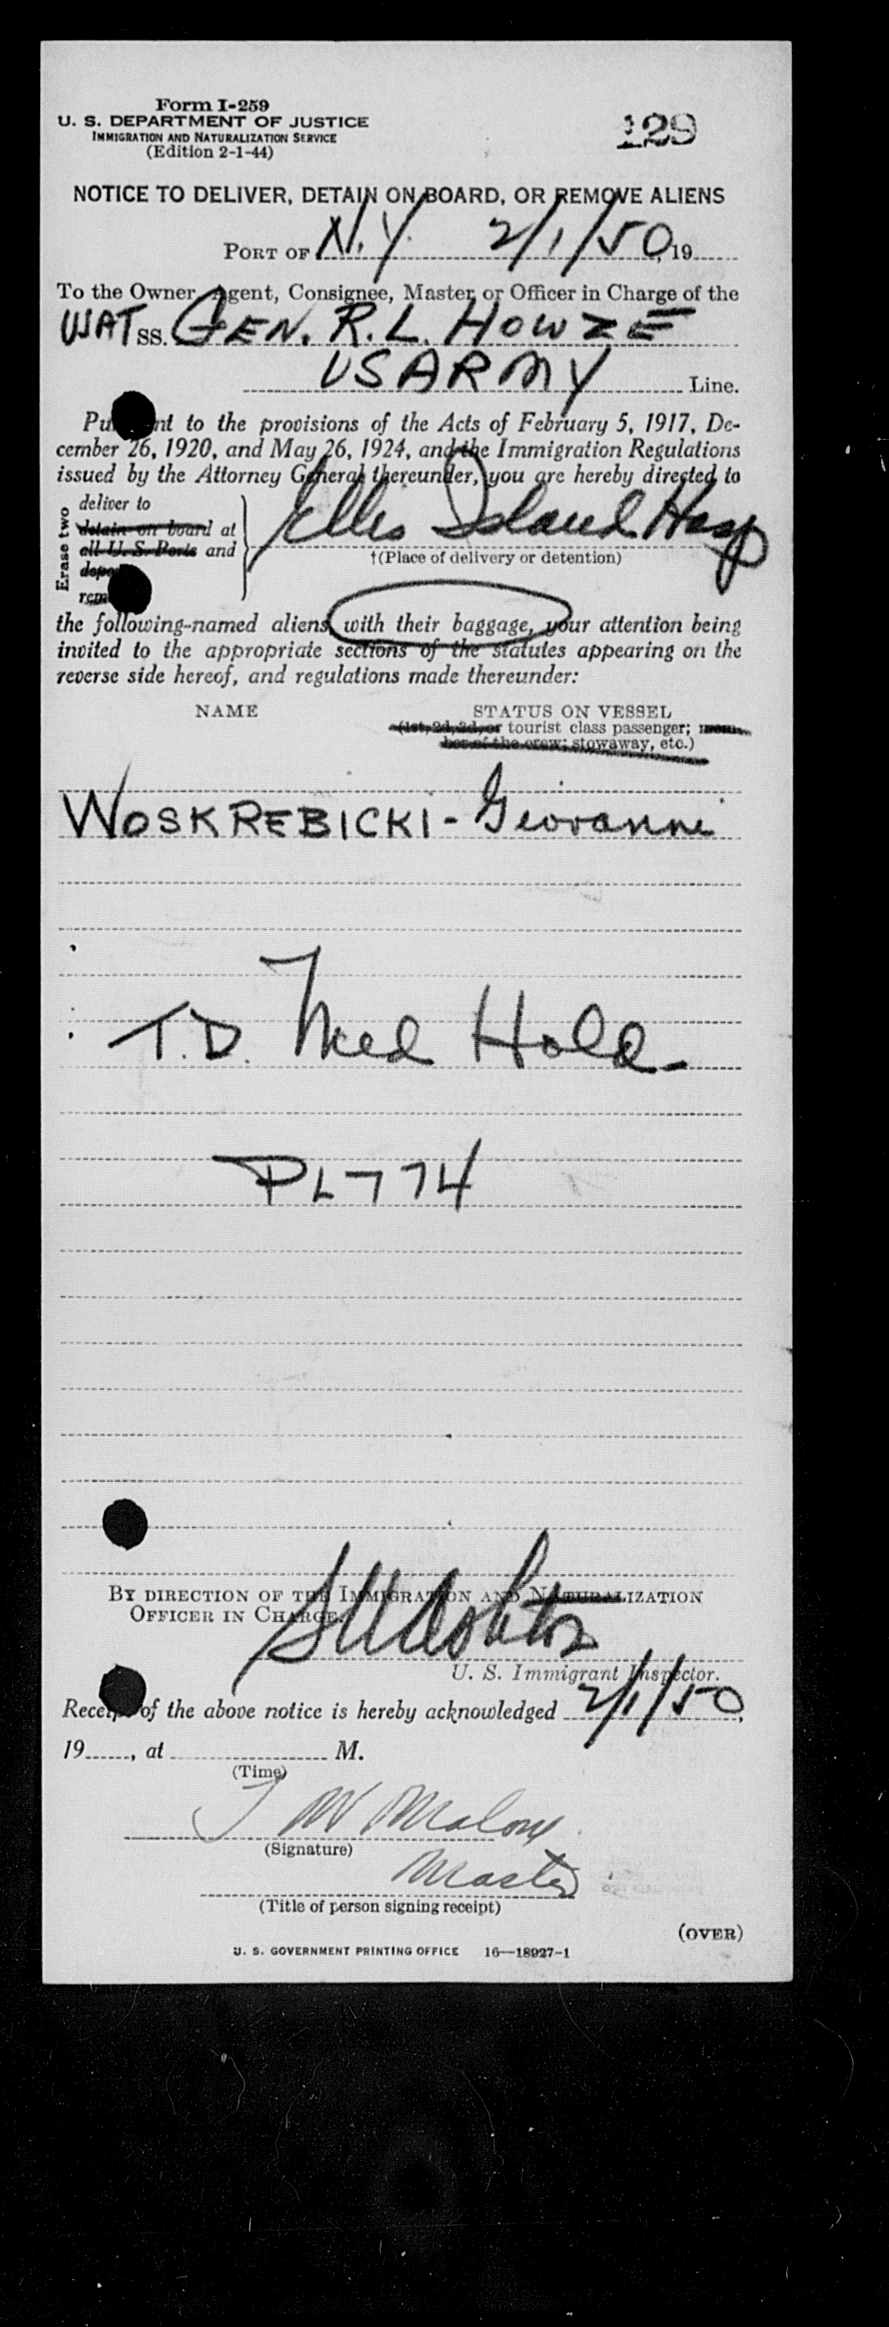 Form I-259
U. S. DEPARTMENT OF JUSTICE
IMMIGRATION AND NATURALIZATION SERVICE
(Edition 2-1-44)
129
NOTICE TO DELIVER, DETAIN ON BOARD, OR REMOVE ALIENS
PORT OF N.Y. 2/1/50, 19
To the Owner, Agent, Consignee, Master, or Officer in Charge of the
USAT SS. GEN. R. L. HOWZE
US ARMY Line.
to the provisions of the Acts of February 5, 1917, De-
cember 26, 1920, and May 26, 1924, and the Immigration Regulations
issued by the Attorney General thereunder, you are hereby directed to
Erase two
deliver to
detain on board at
all U. S. Ports and
Ellis Island Hosp
†(Place of delivery or detention)
the following-named aliens, with their baggage, your attention being
invited to the appropriate sections of the statutes appearing on the
reverse side hereof, and regulations made thereunder:
NAME STATUS ON VESSEL
(1st, 2d, 3d, or tourist class passenger; mem-
ber of the crew; stowaway, etc.)
WOSKREBICKI - Giovanni
T.D. Med Hold
PL 774
BY DIRECTION OF THE IMMIGRATION AND NATURALIZATION
OFFICER IN CHARGE.
U. S. Immigrant Inspector.
Receipt of the above notice is hereby acknowledged 2/1/50,
19, at M.
(Time)
Malone
(Signature)
Master
(Title of person signing receipt)
(OVER)
U. S. GOVERNMENT PRINTING OFFICE 16—18927-1